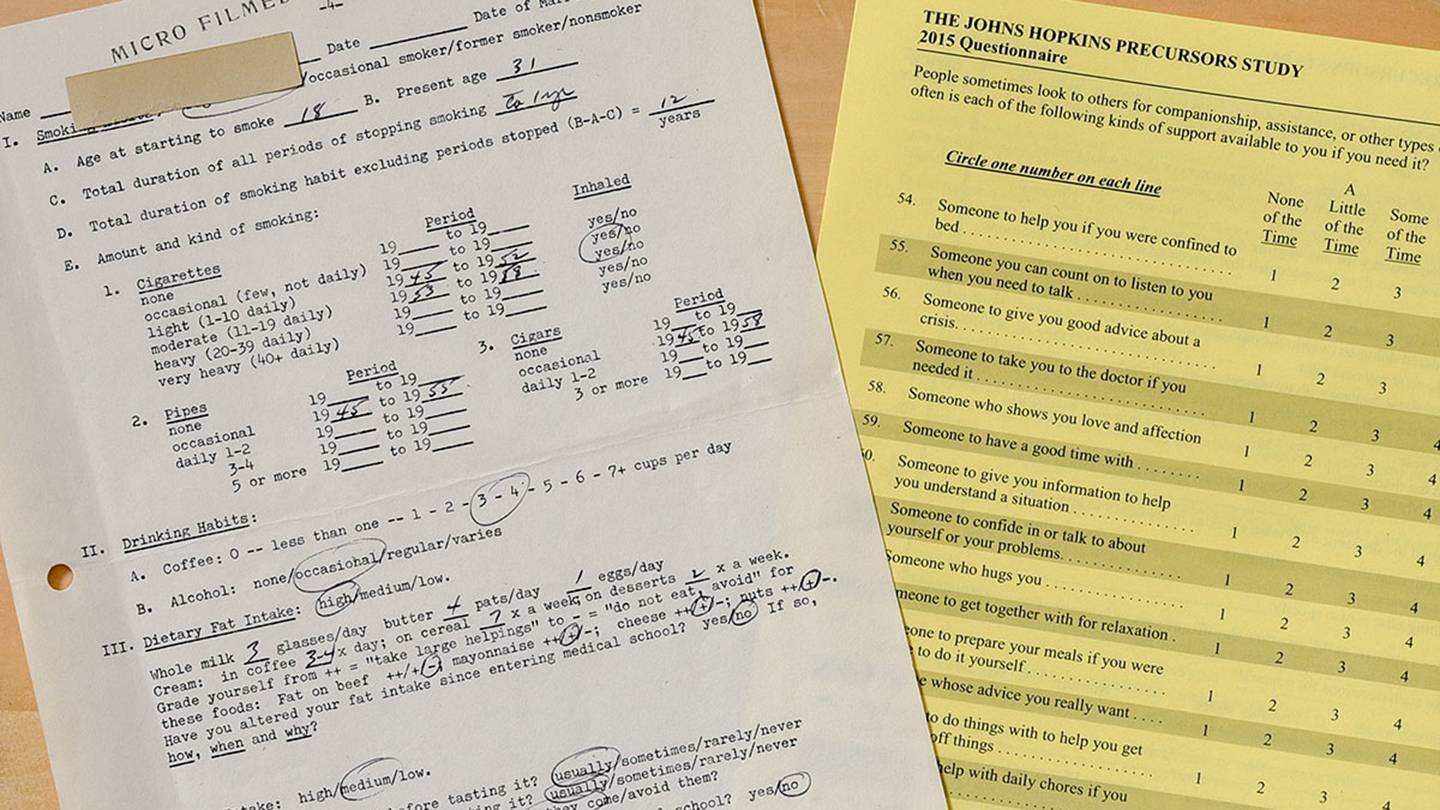 MICRO FILMED
-4-
Name ____ Date ____ Date of
/occasional smoker/former smoker/nonsmoker
I.
A. Age at starting to smoke 18 B. Present age 31
C. Total duration of all periods of stopping smoking 1 yr
D. Total duration of smoking habit excluding periods stopped (B-A-C) = 12 years
E. Amount and kind of smoking:
1. Cigarettes Period Inhaled
none 19____ to 19____ yes/no
occasional (few, not daily) 19____ to 19____ yes/no
light (1-10 daily) 1945 to 1952 yes/no
moderate (11-19 daily) 1953 to 1958 yes/no
heavy (20-39 daily) 19____ to 19____ yes/no
very heavy (40+ daily) 19____ to 19____
2. Pipes Period
none 19____ to 19____
occasional 1945 to 1955
daily 1-2 19____ to 19____
3-4 19____ to 19____
5 or more 19____ to 19____
3. Cigars Period
none 19__ to 19__
occasional 1945 to 1958
daily 1-2 19__ to 19__
3 or more 19__ to 19__
II. Drinking Habits:
A. Coffee: 0 -- less than one -- 1 - 2 - 3 - 4 - 5 - 6 - 7+ cups per day
B. Alcohol: none/occasional/regular/varies
III. Dietary Fat Intake: high/medium/low.
Whole milk 3 glasses/day butter 4 pats/day 1 eggs/day
Cream: in coffee 3-4 x day; on cereal 7 x a week; on desserts 2 x a week.
Grade yourself from ++ = "take large helpings" to - = "do not eat, avoid" for
these foods: Fat on beef ++/+/-; mayonnaise ++/+/-; cheese ++/+/-; nuts ++/+/-.
Have you altered your fat intake since entering medical school? yes/no If so,
how, when and why?
take: high/medium/low.
before tasting it? usually/sometimes/rarely/never
ting it? usually/sometimes/rarely/never
they come/avoid them?
school? yes/no
THE JOHNS HOPKINS PRECURSORS STUDY
2015 Questionnaire
People sometimes look to others for companionship, assistance, or other types
often is each of the following kinds of support available to you if you need it?
Circle one number on each line
None of the Time
A Little of the Time
Some of the Time
54. Someone to help you if you were confined to
bed . . . . . 1 2 3
55. Someone you can count on to listen to you
when you need to talk . . . . . 1 2 3
56. Someone to give you good advice about a
crisis. . . . . 1 2 3
57. Someone to take you to the doctor if you
needed it . . . . . 1 2 3 4
58. Someone who shows you love and affection 1 2 3 4
59. Someone to have a good time with . . . . . 1 2 3 4
0. Someone to give you information to help
you understand a situation . . . . . 1 2 3 4
Someone to confide in or talk to about
yourself or your problems. . . . . 1 2 3 4
Someone who hugs you . . . . . 1 2 3 4
meone to get together with for relaxation . 1 2 3 4
one to prepare your meals if you were
to do it yourself . . . . . 1 2 3 4
e whose advice you really want . . . . 1 2 3 4
to do things with to help you get
off things . . . . . 1 2 3 4
help with daily chores if you
1 2 3 4